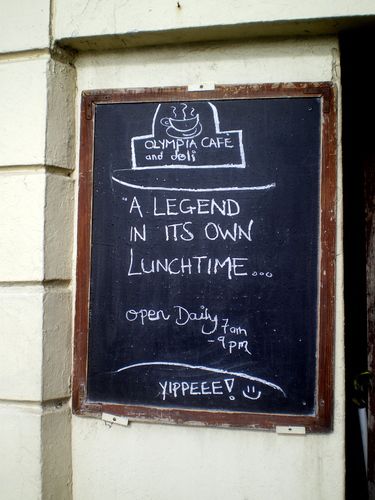 OLYMPIA CAFÉ
and deli
"A LEGEND
IN ITS OWN
LUNCHTIME...
open Daily 7am
- 9pm
YIPPEEE!